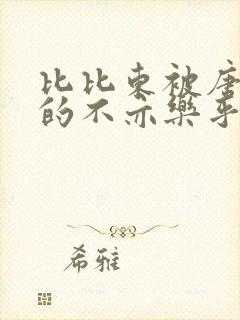 比比东被唐
的不亦乐乎
希雅